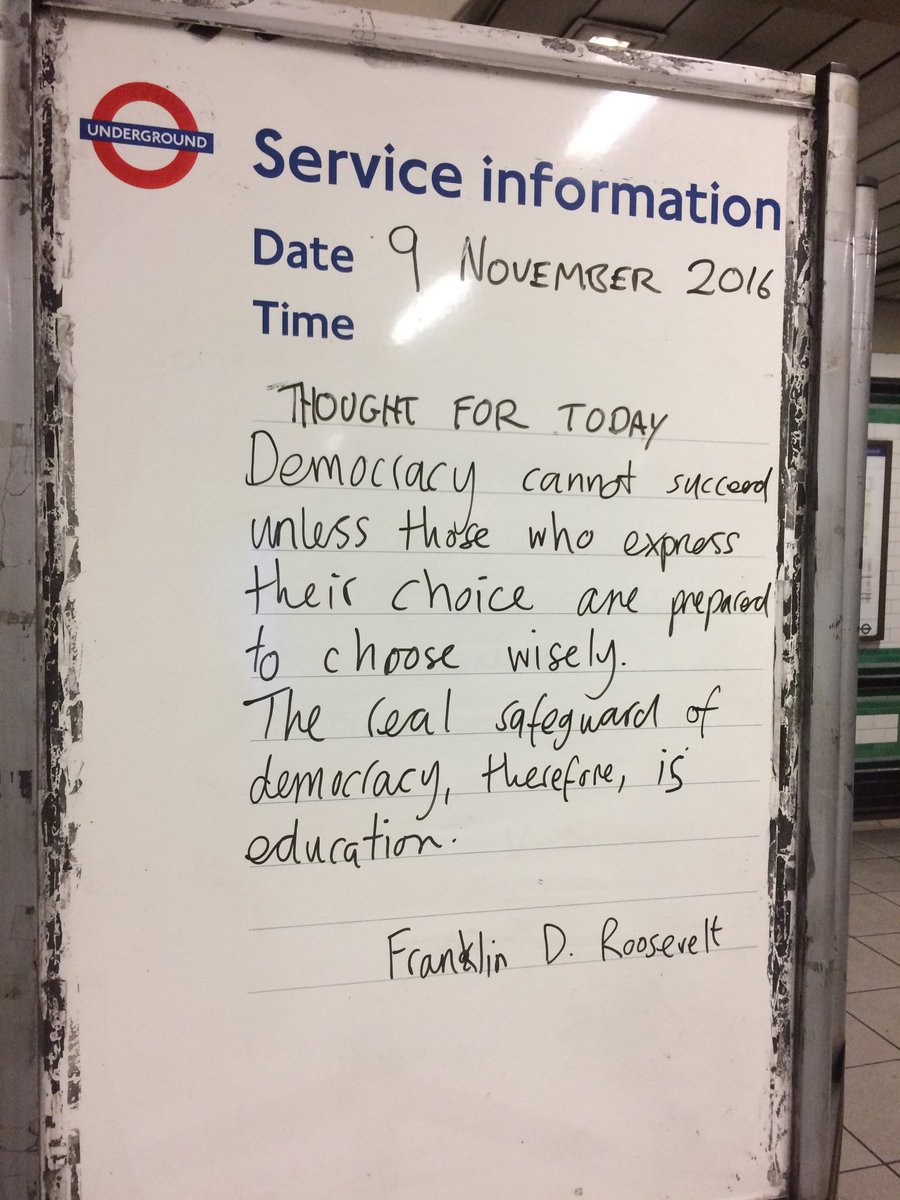 UNDERGROUND
Service information
Date 9 NOVEMBER 2016
Time
THOUGHT FOR TODAY
Democracy cannot succeed
unless those who express
their choice are prepared
to choose wisely.
The real safeguard of
democracy, therefore, is
education.
Franklin D. Roosevelt